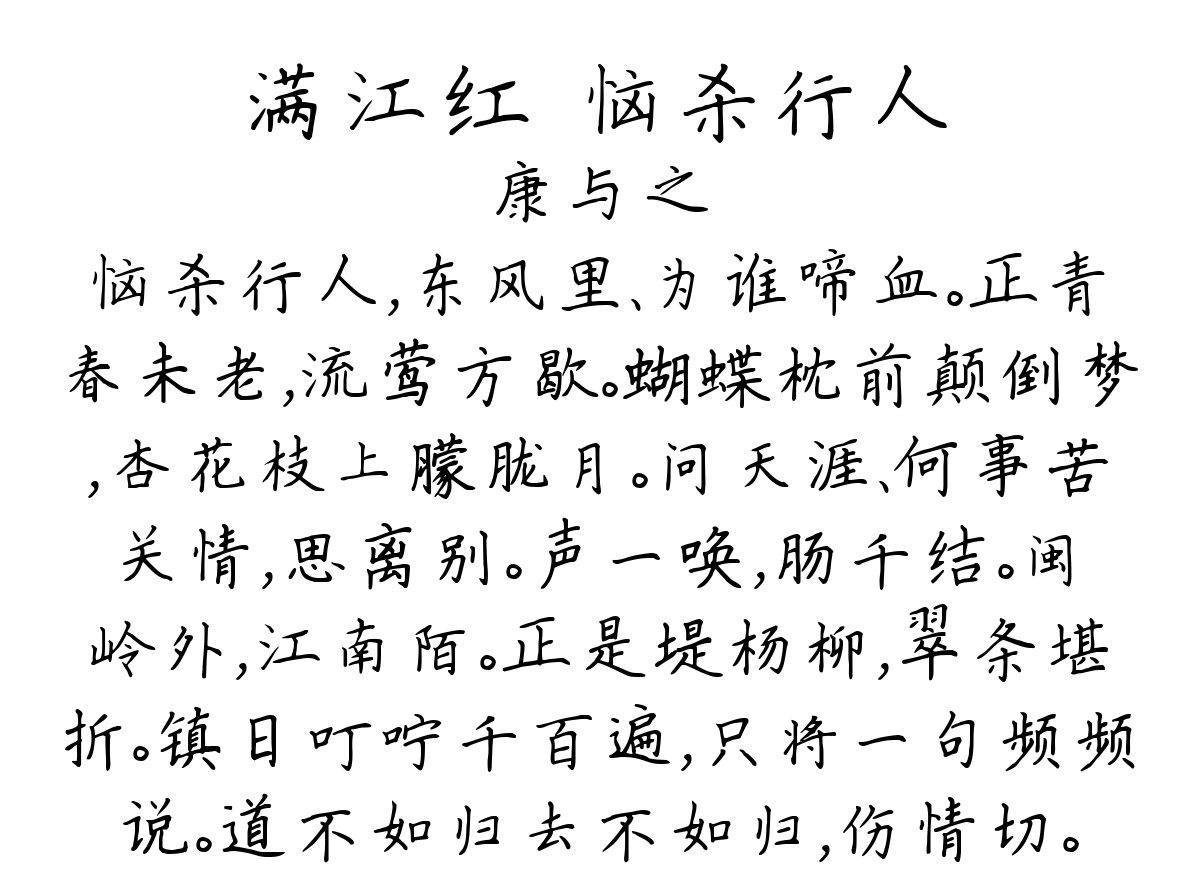 满江红 恼杀行人
康与之
恼杀行人,东风里、为谁啼血。正青
春未老,流莺方歇。蝴蝶枕前颠倒梦
,杏花枝上朦胧月。问天涯、何事苦
关情,思离别。声一唤,肠千结。闽
岭外,江南陌。正是堤杨柳,翠条堪
折。镇日叮咛千百遍,只将一句频频
说。道不如归去不如归,伤情切。